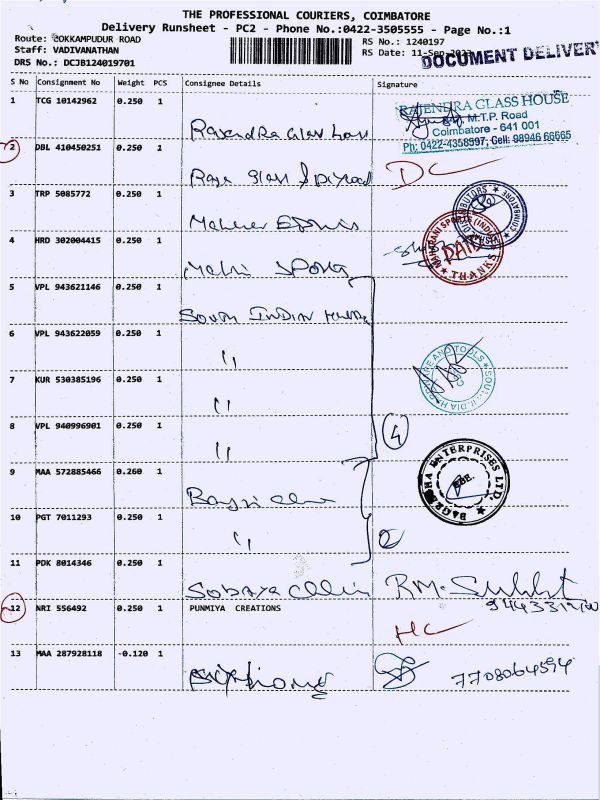 THE PROFESSIONAL COURIERS, COIMBATORE
Delivery Runsheet - PC2 - Phone No.:0422-3505555 - Page No.:1
Route: COKKAMPUDUR ROAD
RS No.: 1240197
Staff: VADIVANATHAN
RS Date: 11-Sep-2023
DOCUMENT DELIVER
DRS No.: DCJB124019701
S No Consignment No Weight PCS Consignee Details Signature
1 TCG 10142962 0.250 1
Rajendra Glass
RAJENDRA GLASS HOUSE
M.T.P. Road
Coimbatore - 641 001
Ph: 0422-4358597, Cell: 98946 66665
2 DBL 410450251 0.250 1
Raja Glass & Plywood DC
3 TRP 5085772 0.250 1
4 HRD 302004415 0.250 1
MAHARANI SPORTS (INDIA)
PAID
THANKS
COIMBATORE
5 VPL 943621146 0.250 1
South Indian
6 VPL 943622059 0.250 1
"
7 KUR 530385196 0.250 1
"
8 VPL 940996901 0.250 1
" 4
9 MAA 572885466 0.260 1
BAGREDHA ENTERPRISES LTD.
CBE.
10 PGT 7011293 0.250 1
" 2
11 PDK 8014346 0.250 1
12 NRI 556492 0.250 1 PUNMIYA CREATIONS
HC
13 MAA 287928118 -0.120 1
7708064594